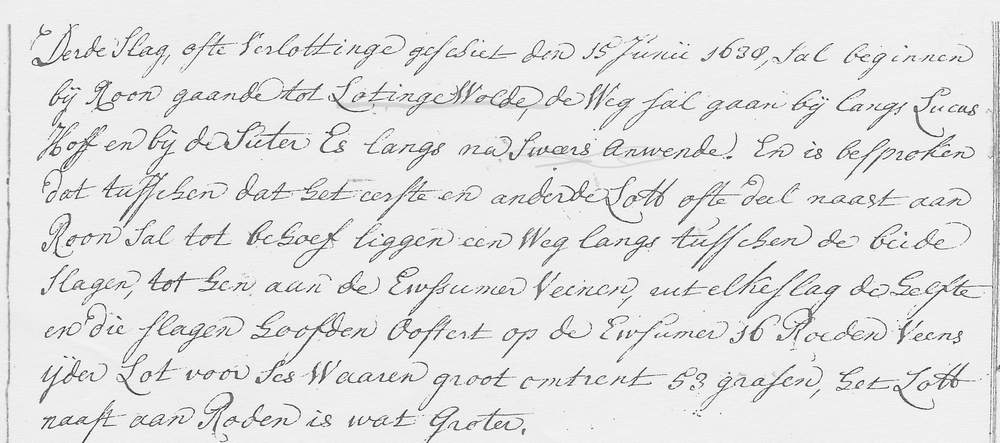 Derde Slag, ofte Verlottinge geschiet den 15 Junii 1638, sal beginnen
bij Roon gaande tot Lotinge Wolde, de Weg sal gaan bij langs Lucas
Hoff en bij de Suter Es langs na Sweers Anwende. En is besproken
dat tusschen dat het eerste en anderde Lott ofte deel naast aan
Roon Sal tot behoef liggen een Weg langs tusschen de beide
slagen, tot hen aan de Ewssumer Veenen, uut elke slag de helfte
en die slagen hoofden Oostert op de Ewsumer 16 Roeden Veens
ijder Lot voor Ses Waaren groot omtrent 53 grasen, het Lott
naast aan Roden is wat Groter.